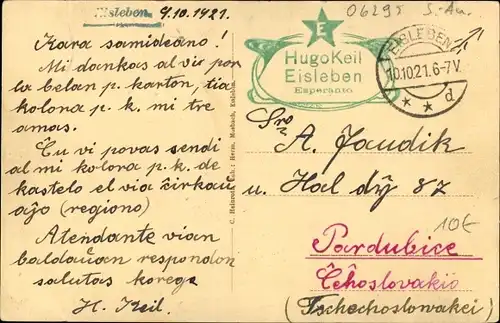 Eisleben 9.10.1921.
Kara samideano!
Mi dankas al vi por
la belan p. karton, tia
kolora p. k. mi tre
amas.
Ĉu vi povas sendi
al mi kolora p. k. de
kastelo el via ĉirkaŭ
aĵo (regiono)
Atendante vian
baldaŭan respondon
salutas korege
H. Keil.
C. Heinrich, Inh.: Herm. Morbach, Eisleben.
06295 S.-An.
E
Hugo Keil
Eisleben
Esperanto
EISLEBEN
10.10.21.6-7V.
* * d
Sro
A. Jaudik
u. Hal dÿ 87
10€
Pardubice
Ĉeĥoslovakio
(Tschechoslowakei)